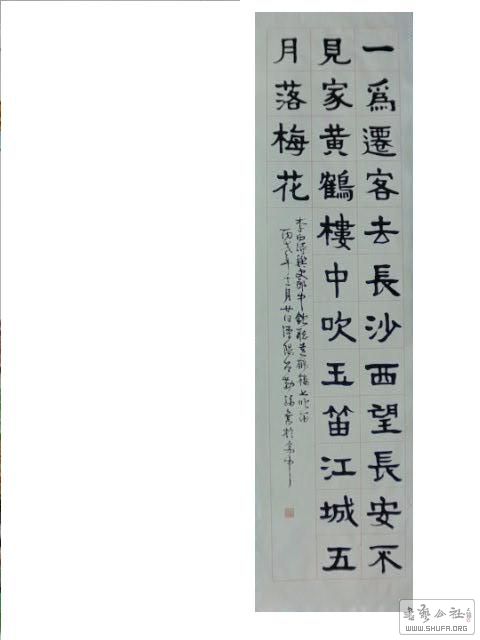 一為遷客去長沙西望長安不
見家黄鶴樓中吹玉笛江城五
月落梅花
李白詩與史郎中欽聽黄鶴樓上吹笛
丙戌年
書藝公社
WWW.SHUFA.ORG